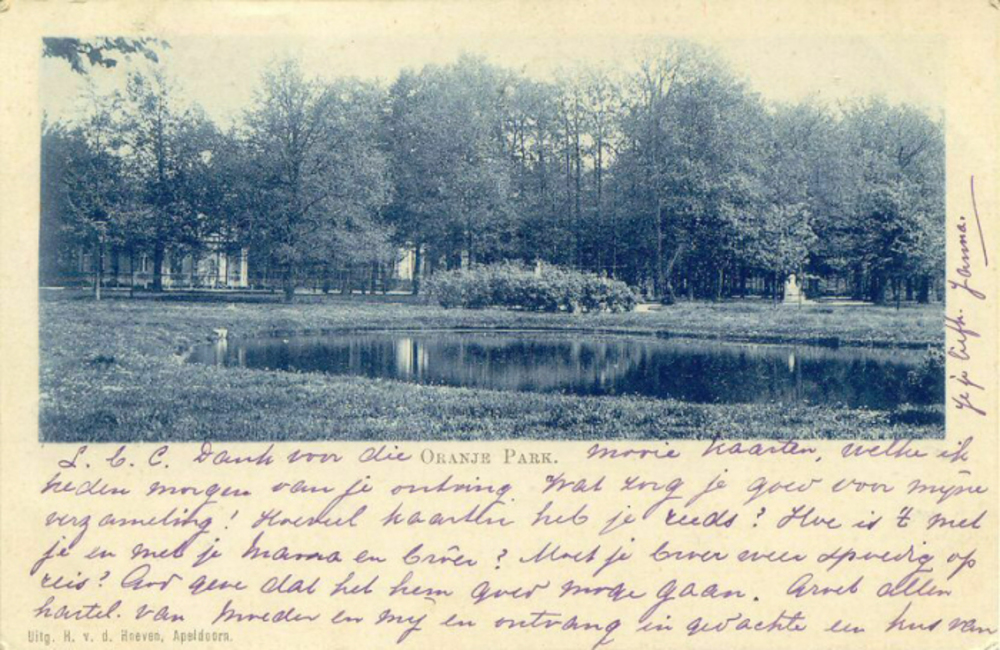 L. C. C. Dank voor die ORANJE PARK. mooie kaarten, welke ik
heden morgen van je ontving. Wat zorg je goed voor mijne
verzameling! Hoeveel kaarten heb je reeds? Hoe is 't met
je en met je Mama en Broer? Moet je Broer weer spoedig op
reis? God geve dat het hem goed moge gaan. Groet allen
hartel. van Moeder en mij en ontvang in gedachte een kus van
Uitg. H. v. d. Hoeven, Apeldoorn.
je liefh. Janna.